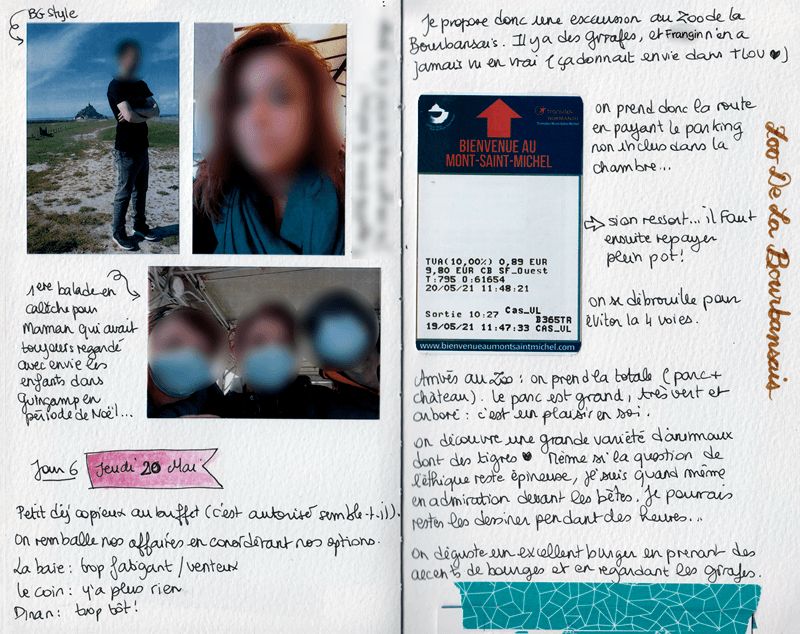 BG Style
1ère balade en
calèche pour
Maman qui avait
toujours regardé
avec envie les
enfants dans
Guingamp en
période de Noël...
Jour 6 Jeudi 20 Mai
Petit déj copieux au buffet (c'est autorisé semble-t-il).
On remballe nos affaires en considérant nos options.
La baie : trop fatigant / venteux
Le coin : y'a plus rien
Dinan : trop tôt!
Je propose donc une excursion au Zoo de la
Bourbansais. Il y a des girafes, et Frangin n'en a
jamais vu en vrai (ça donnait envie dans TLOU ♥)
BIENVENUE AU
MONT-SAINT-MICHEL
TVA(10,00%) 0,89 EUR
9,80 EUR CB SF_Ouest
T:795 0:61654
20/05/21 11:48:21
Sortie 10:27 Cas_VL
B365TR
19/05/21 11:47:33 CAS_VL
www.bienvenueaumontsaintmichel.com
on prend donc la route
en payant le parking
non inclus dans la
chambre...
⇨ si on ressort... il faut
ensuite repayer
plein pot!
on se débrouille pour
éviter la 4 voies.
Zoo De La Bourbansais
Arrivés au Zoo : on prend la totale (parc +
château). Le parc est grand, très vert et
arboré : c'est un plaisir en soi.
on découvre une grande variété d'animaux
dont des tigres ♥ Même si la question de
l'éthique reste épineuse, je suis quand même
en admiration devant les bêtes. Je pourrais
rester les dessiner pendant des heures...
on déguste un excellent burger en prenant des
accents de bourges et en regardant les girafes.